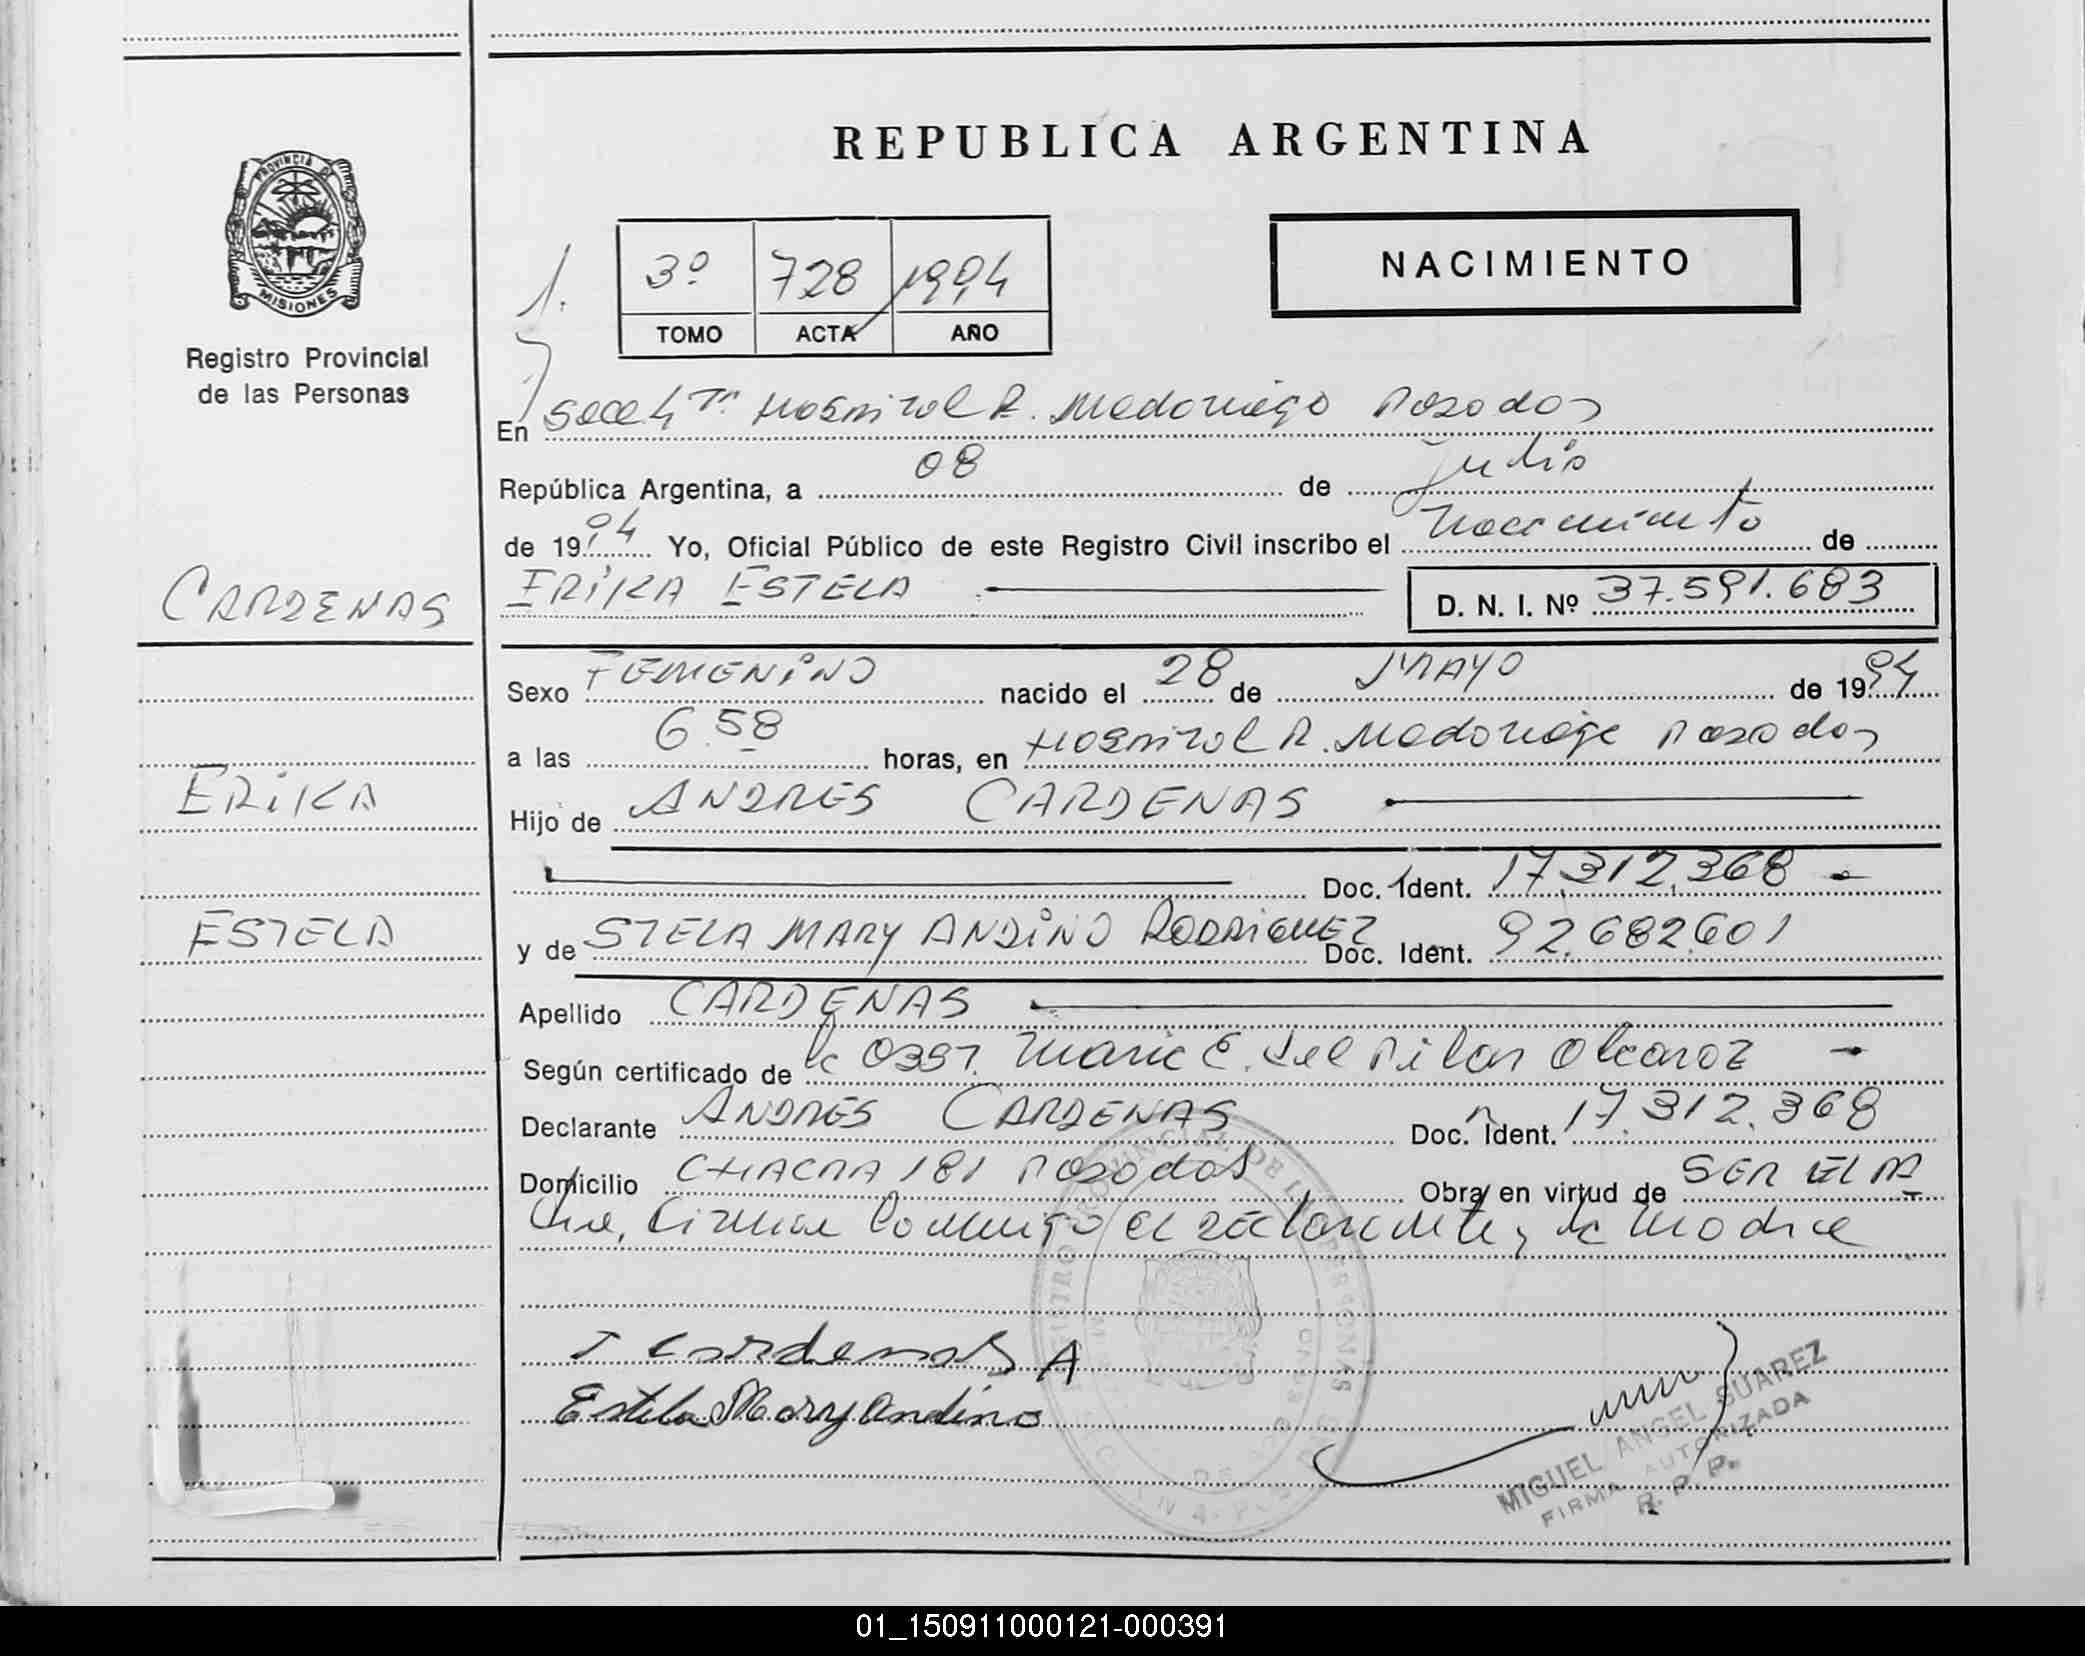 REPUBLICA ARGENTINA
PROVINCIA DE
MISIONES
Registro Provincial
de las Personas
3º 728 1994
TOMO ACTA AÑO
NACIMIENTO
En Secc. 4ta Hospital R. Madariaga Posadas
República Argentina, a 08 de Julio
de 1994 Yo, Oficial Público de este Registro Civil inscribo el Nacimiento de
ERIKA ESTELA D. N. I. Nº 37.591.683
CARDENAS
ERIKA
ESTELA
Sexo FEMENINO nacido el 28 de MAYO de 1994
a las 6.58 horas, en Hospital R. Madariaga Posadas
Hijo de ANDRES CARDENAS
Doc. Ident. 17.312.368
y de STELA MARY ANDINO RODRIGUEZ Doc. Ident. 92.682.601
Apellido CARDENAS
Según certificado de la Obst. Maria E. del Pilar Alcaraz
Declarante ANDRES CARDENAS Doc. Ident. 17.312.368
Domicilio CHACRA 181 Posadas Obra en virtud de SER EL PA
dre, firman conmigo el declarante y la madre
Cardenas A
Estela Mary Andino
MIGUEL ANGEL SUAREZ
FIRMA AUTORIZADA
R. P. P.
01_150911000121-000391